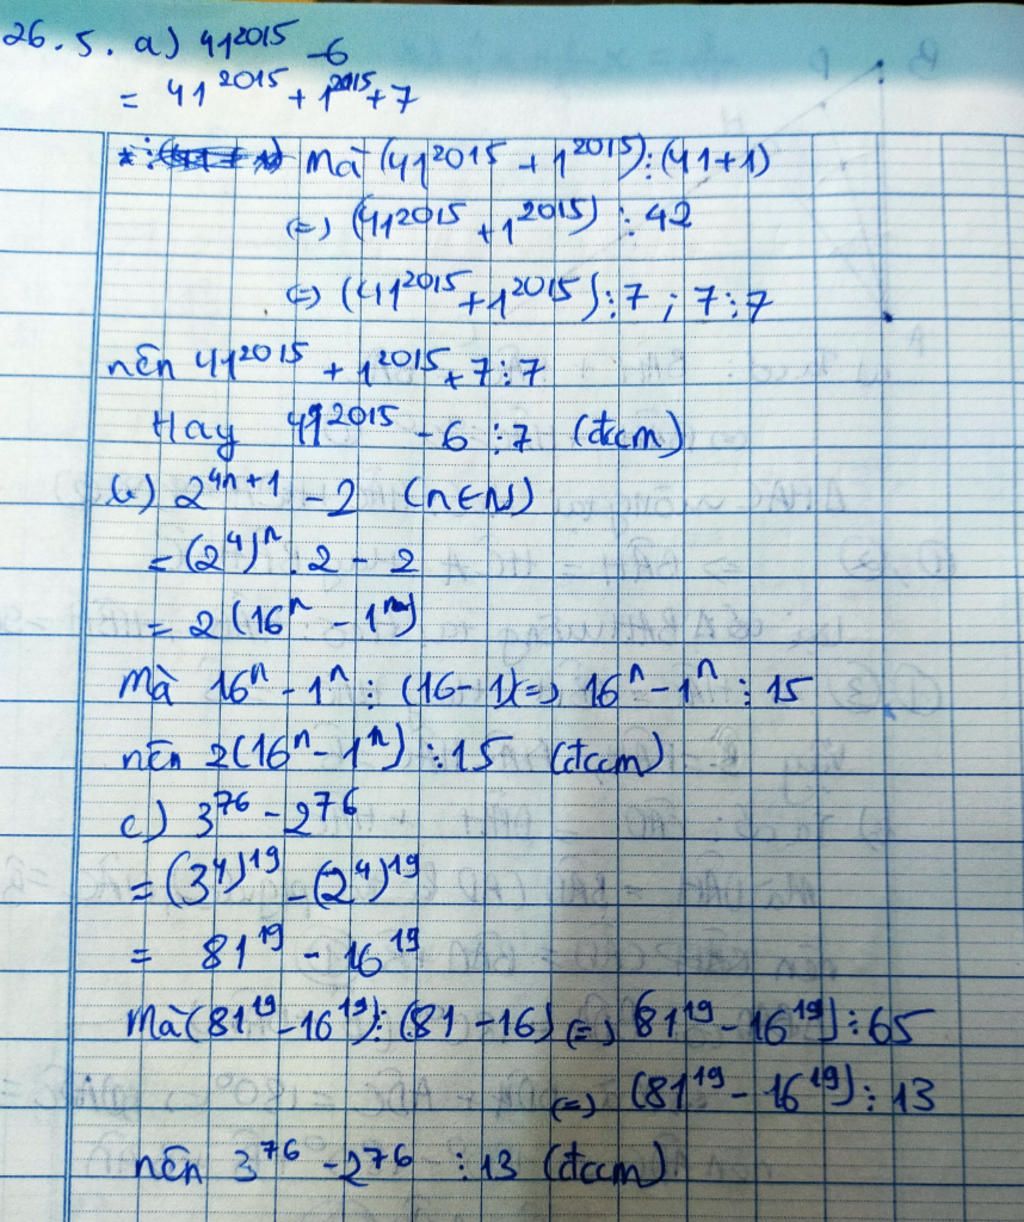 26.5. a) 41²⁰¹⁵ - 6
= 41²⁰¹⁵ + 1²⁰¹⁵ + 7
Mà (41²⁰¹⁵ + 1²⁰¹⁵) ⋮ (41+1)
(=) (41²⁰¹⁵ + 1²⁰¹⁵) ⋮ 42
(=) (41²⁰¹⁵ + 1²⁰¹⁵) ⋮ 7 ; 7 ⋮ 7
nên 41²⁰¹⁵ + 1²⁰¹⁵ + 7 ⋮ 7
Hay 41²⁰¹⁵ - 6 ⋮ 7 (đccm)
b) 2⁴ⁿ⁺¹ - 2 (n ∈ N)
= (2⁴)ⁿ . 2 - 2
= 2 (16ⁿ - 1ⁿ)
Mà 16ⁿ - 1ⁿ ⋮ (16 - 1) (=) 16ⁿ - 1ⁿ ⋮ 15
nên 2(16ⁿ - 1ⁿ) ⋮ 15 (đccm)
c) 3⁷⁶ - 2⁷⁶
= (3⁴)¹⁹ - (2⁴)¹⁹
= 81¹⁹ - 16¹⁹
Mà (81¹⁹ - 16¹⁹) ⋮ (81 - 16) (=) (81¹⁹ - 16¹⁹) ⋮ 65
(=) (81¹⁹ - 16¹⁹) ⋮ 13
nên 3⁷⁶ - 2⁷⁶ ⋮ 13 (đccm)